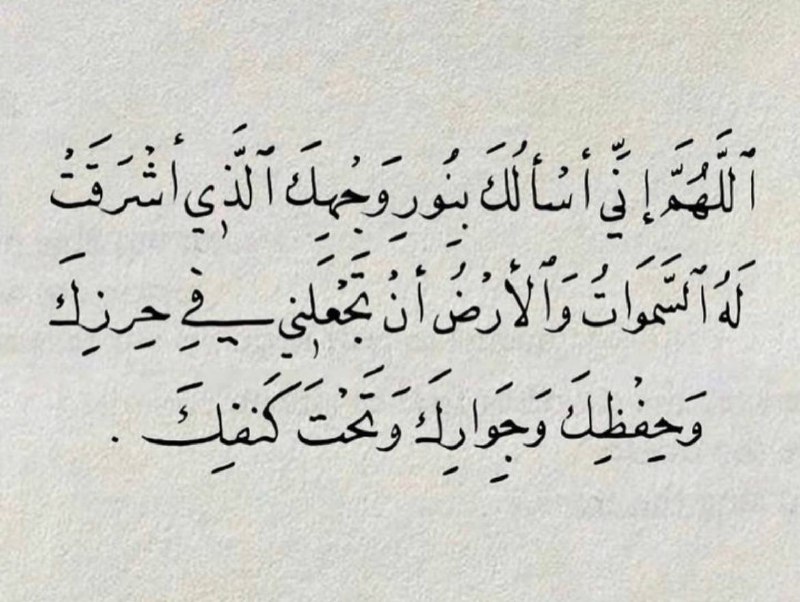 ٱللَّهُمَّ إِنِّي أَسْأَلُكَ بِنُورِ وَجْهِكَ ٱلَّذِي أَشْرَقَتْ
لَهُ ٱلسَّمَوَاتُ وَٱلْأَرْضُ أَنْ تَجْعَلَنِي فِي حِرزِكَ
وَحِفْظِكَ وَجِوَارِكَ وَتَحْتَ كَنَفِكَ .